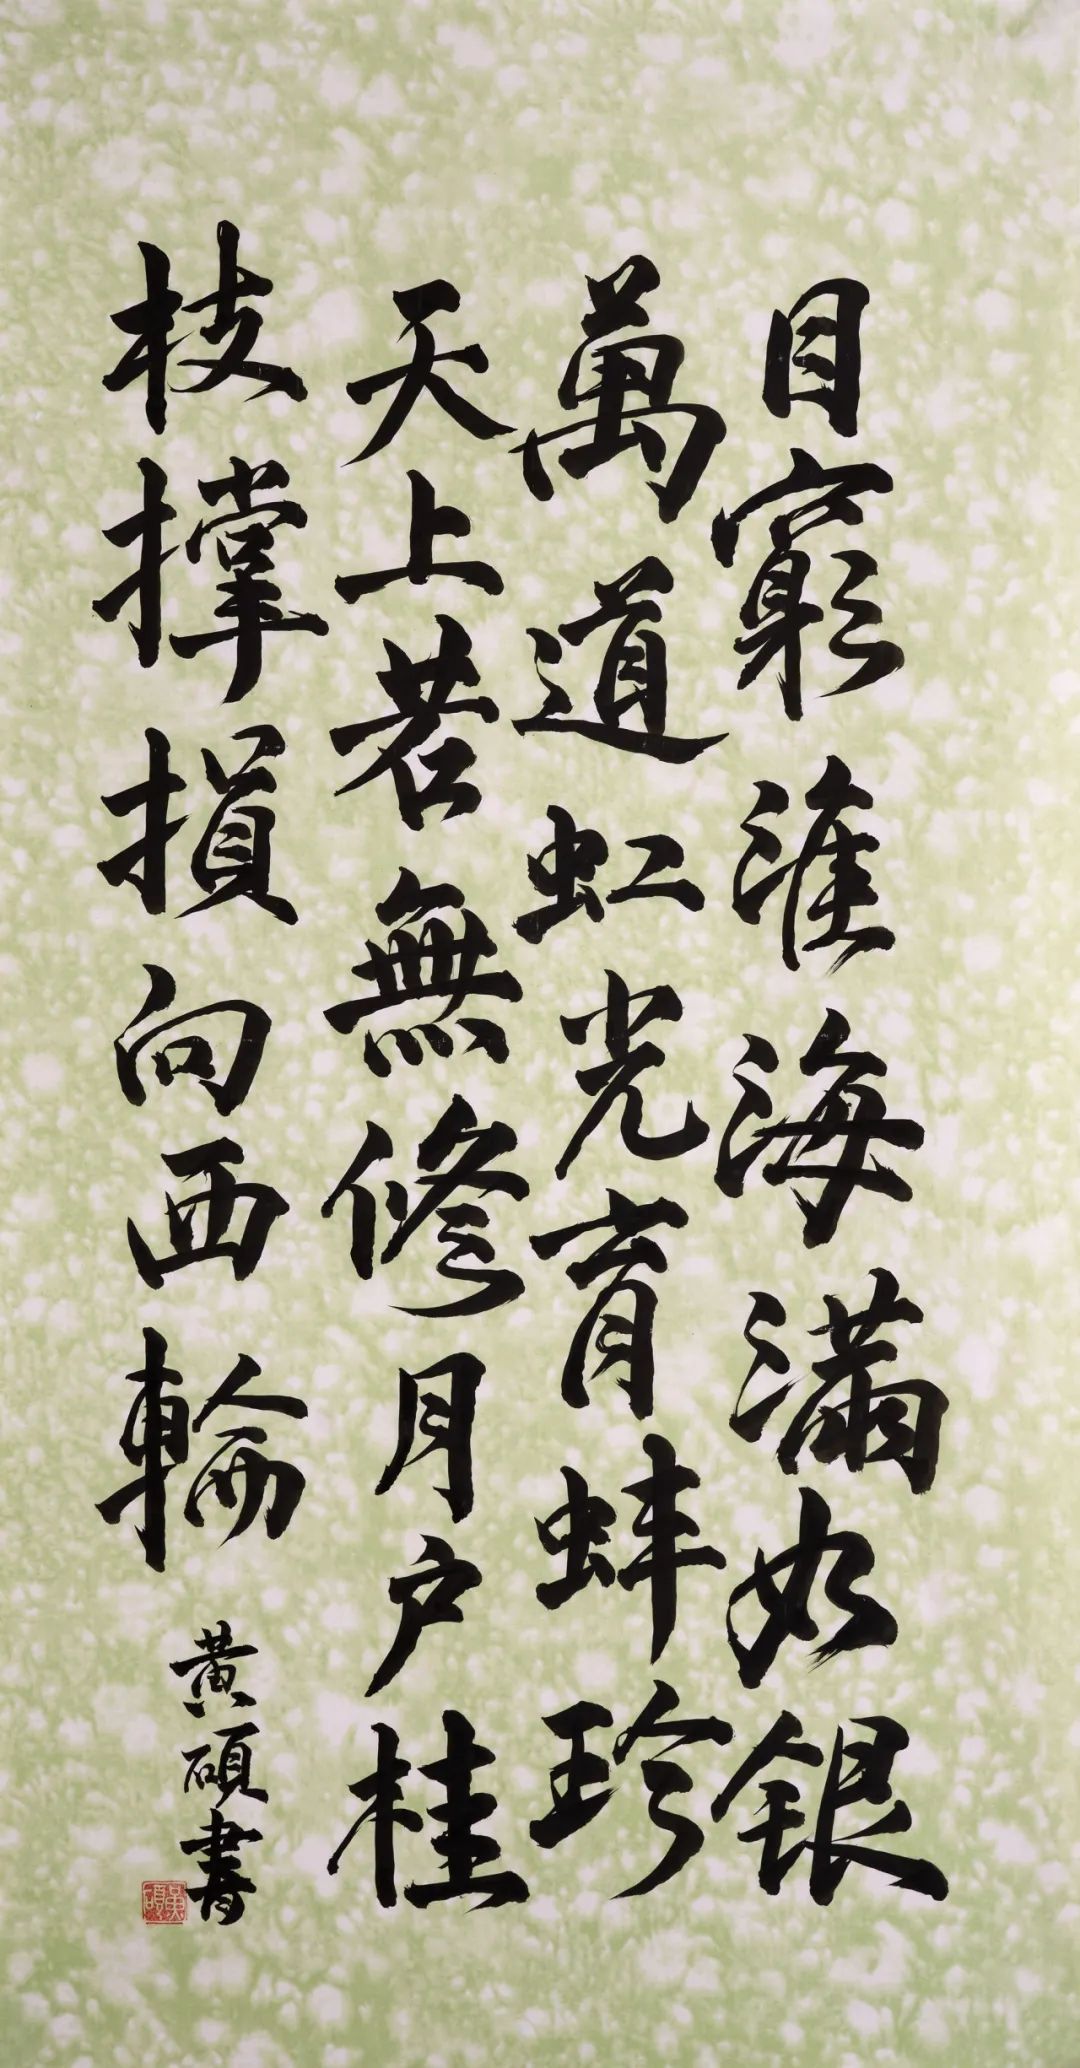 目窮淮海滿如銀
萬道虹光育蚌珍
天上若無修月户桂
枝撑損向西輪
黄碩書
黄碩